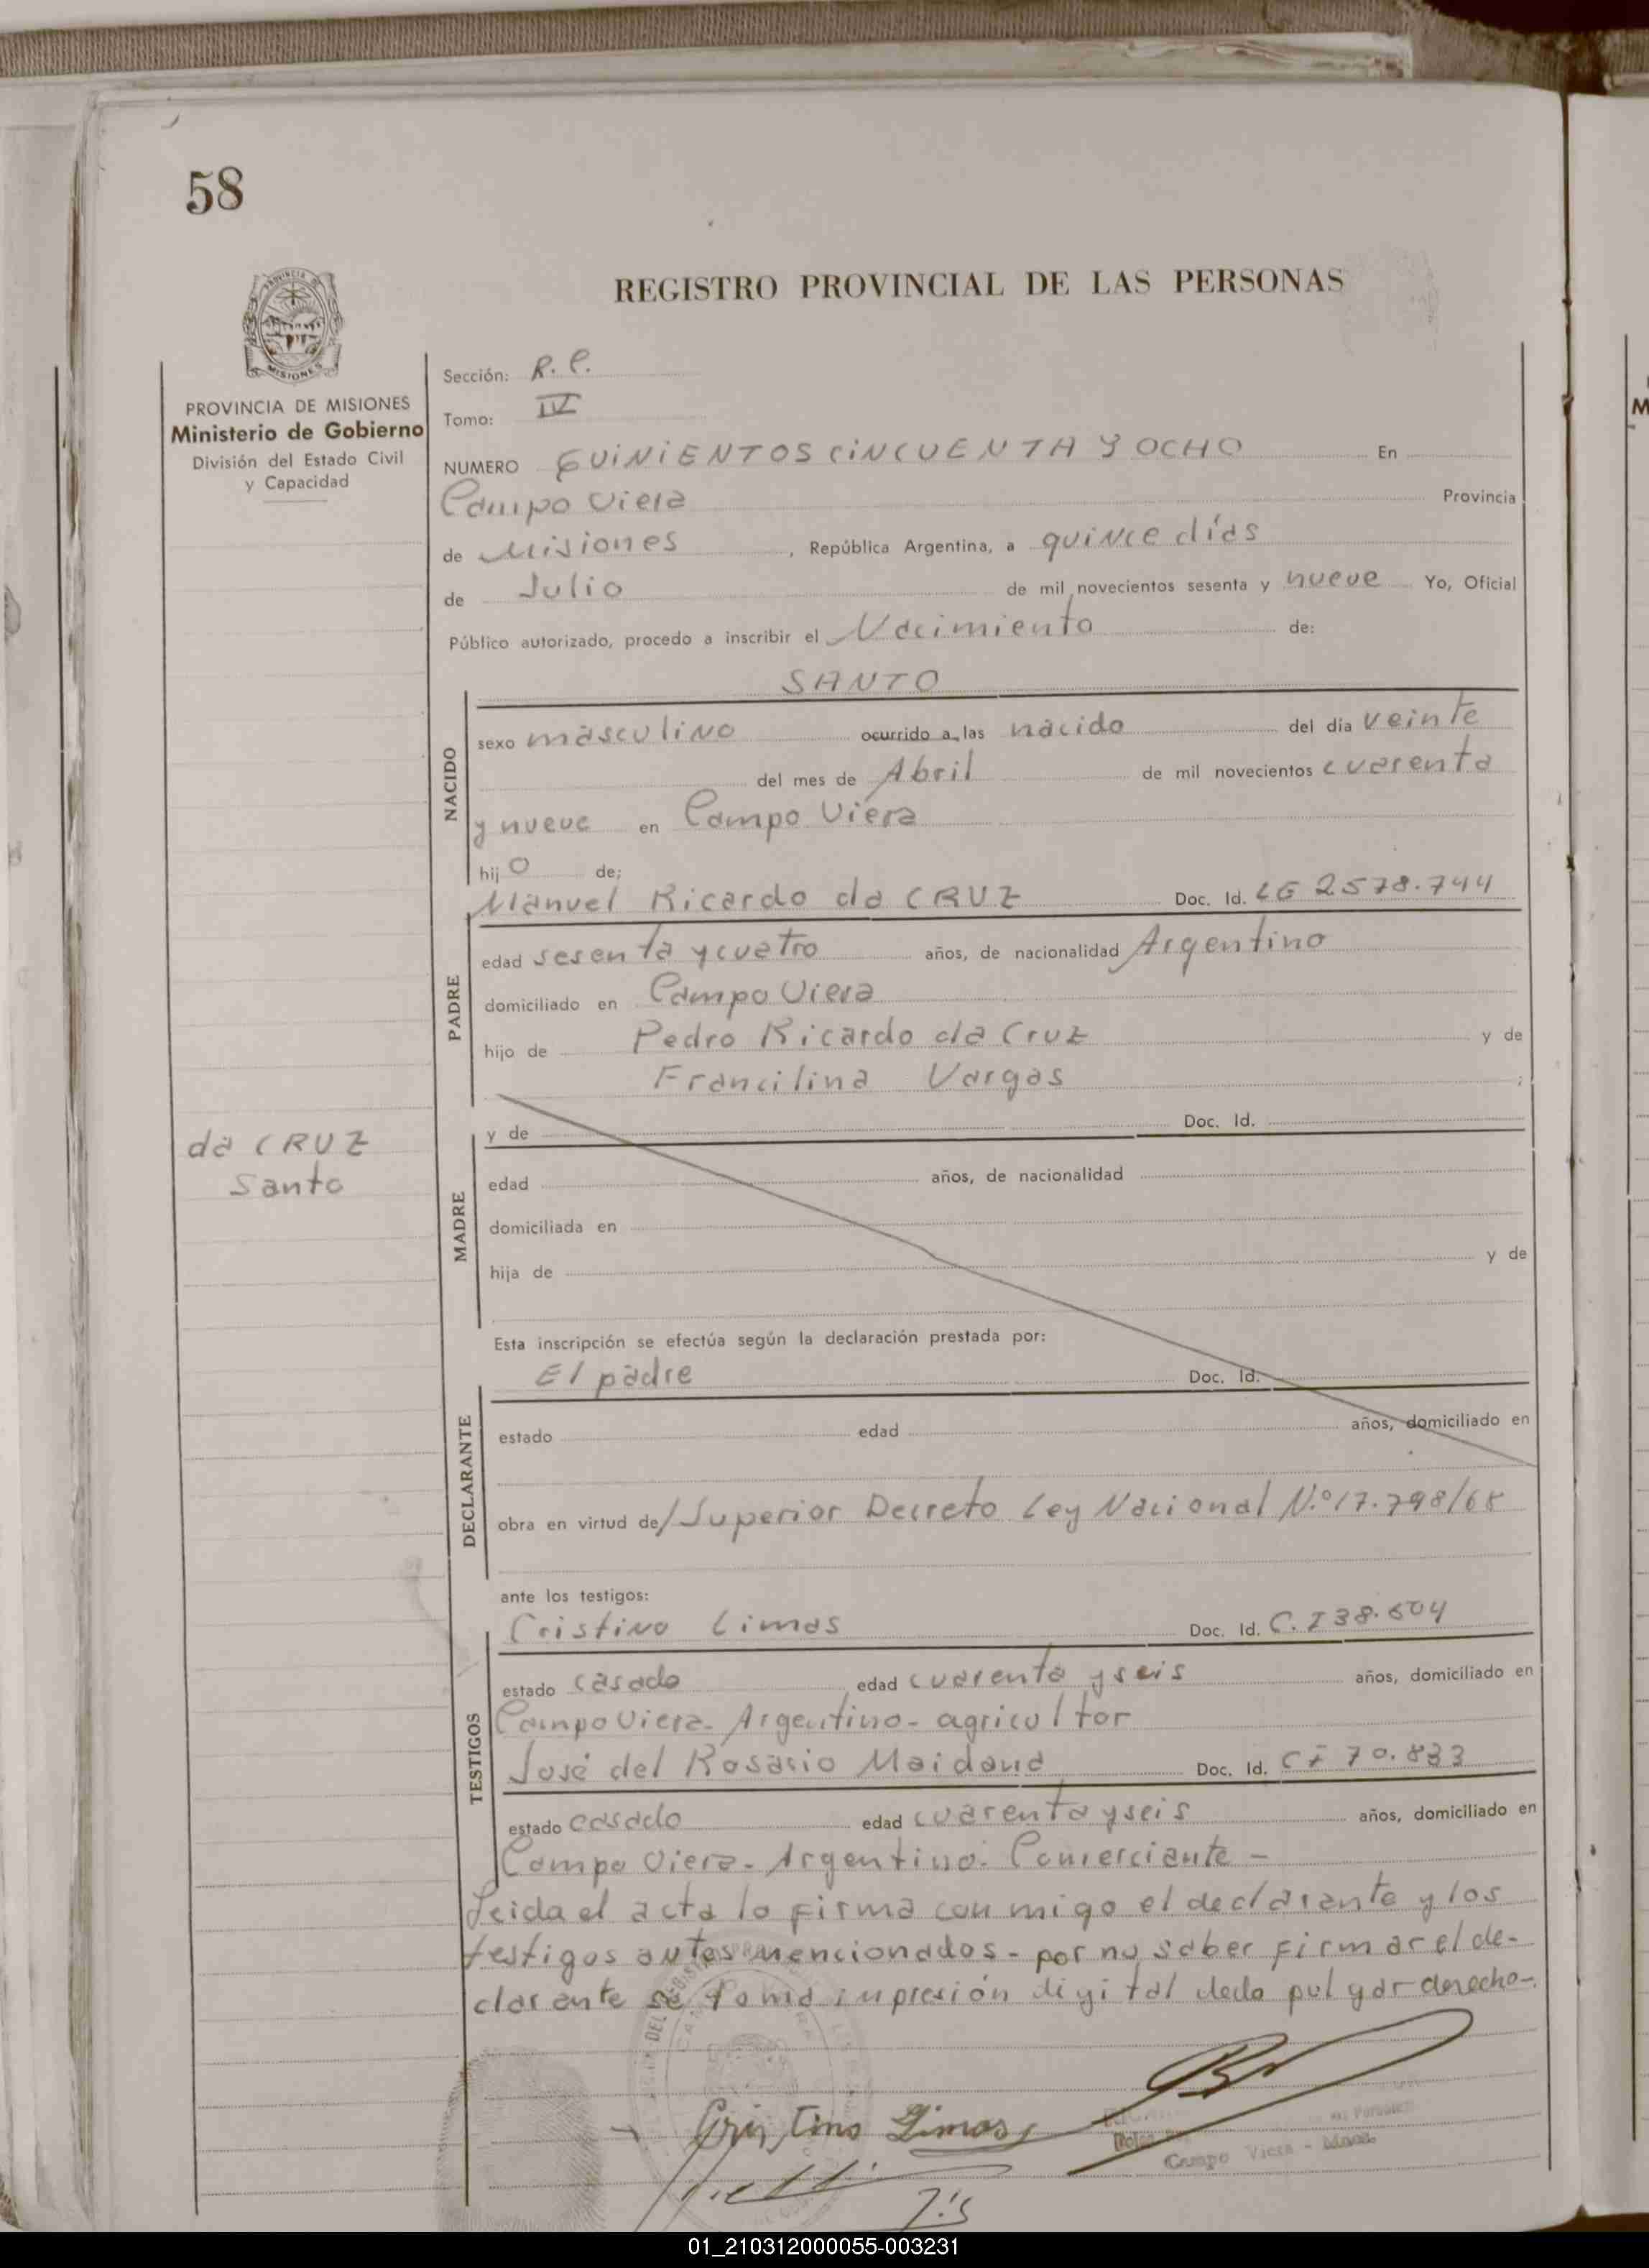 58
REGISTRO PROVINCIAL DE LAS PERSONAS
PROVINCIA DE MISIONES
Ministerio de Gobierno
División del Estado Civil
y Capacidad
Sección: R. C.
Tomo: IV
NUMERO QUINIENTOS CINCUENTA Y OCHO En
Campo Viera Provincia
de Misiones, República Argentina, a quince días
de Julio de mil novecientos sesenta y nueve Yo, Oficial
Público autorizado, procedo a inscribir el Nacimiento de:
SANTO
NACIDO
sexo masculino ocurrido a las nacido del día veinte
del mes de Abril de mil novecientos cuarenta
y nueve en Campo Viera
hijo de;
Manuel Ricardo da CRUZ Doc. Id. LE 2578.744
PADRE
edad sesenta y cuatro años, de nacionalidad Argentino
domiciliado en Campo Viera
hijo de Pedro Ricardo da Cruz y de
Francilina Vargas ;
da CRUZ
Santo
MADRE
y de Doc. Id.
edad años, de nacionalidad
domiciliada en
hija de y de
Esta inscripción se efectúa según la declaración prestada por:
El padre Doc. Id.
DECLARANTE
estado edad años, domiciliado en
obra en virtud de/Superior Decreto Ley Nacional N.º 17.798/68
ante los testigos:
Cristino Limas Doc. Id. C.I 38.604
TESTIGOS
estado casado edad cuarenta y seis años, domiciliado en
Campo Viera- Argentino- agricultor
José del Rosario Maidana Doc. Id. CI 70.833
estado casado edad cuarenta y seis años, domiciliado en
Campo Viera- Argentino- Comerciante-
Leida el acta lo firma con migo el declarante y los
testigos antes mencionados- por no saber firmar el de-
clarante se toma impresión digital dedo pulgar derecho-.
Cristino Limas
Campo Viera - Mnes.
01_210312000055-003231